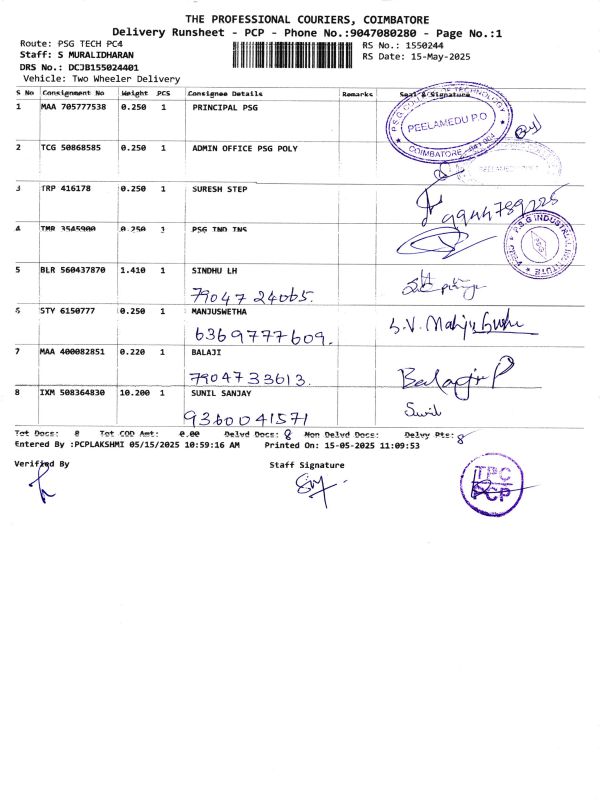 THE PROFESSIONAL COURIERS, COIMBATORE
Delivery Runsheet - PCP - Phone No.:9047080280 - Page No.:1
Route: PSG TECH PC4
RS No.: 1550244
Staff: S MURALIDHARAN
RS Date: 15-May-2025
DRS No.: DCJB155024401
Vehicle: Two Wheeler Delivery
S No Consignment No Weight PCS Consignee Details Remarks Seal & Signature
1 MAA 705777538 0.250 1 PRINCIPAL PSG
P.S.G COLLEGE OF TECHNOLOGY
PEELAMEDU P.O
COIMBATORE - 641 004
2 TCG 50868585 0.250 1 ADMIN OFFICE PSG POLY
3 TRP 416178 0.250 1 SURESH STEP
9944789225
4 TMR 3545900 0.250 1 PSG IND INS
P.S.G INDUSTRIAL INSTITUTE
5 BLR 560437870 1.410 1 SINDHU LH
7904724065.
6 STY 6150777 0.250 1 MANJUSWETHA
6369777609.
7 MAA 400082851 0.220 1 BALAJI
7904733613.
Balaji P
8 IXM 508364830 10.200 1 SUNIL SANJAY
9360041571
Sunil
Tot Docs: 8 Tot COD Amt: 0.00 Delvd Docs: 8 Non Delvd Docs: Delvy Pts: 8
Entered By :PCPLAKSHMI 05/15/2025 10:59:16 AM Printed On: 15-05-2025 11:09:53
Verified By
Staff Signature
TPC
PCP